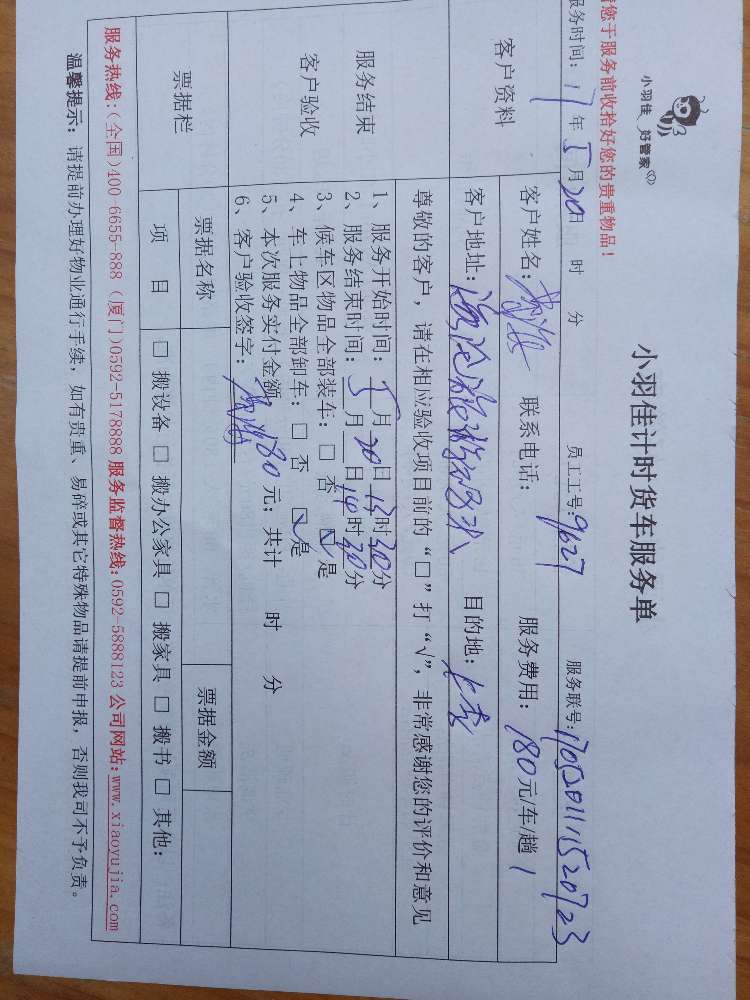 小羽佳 好管家
小羽佳计时货车服务单
您于服务前收拾好您的贵重物品！
服务时间：17年5月20日 时 分 员工工号：9627 服务联号：170520111520723
客户资料
客户姓名： 联系电话： 服务费用：180元/车/趟 1
客户地址： 目的地：
尊敬的客户，请在相应验收项目前的“□”打“√”，非常感谢您的评价和意见
服务结束
客户验收
1、服务开始时间：5月20日13时30分
2、服务结束时间：5月 日14时30分
3、候车区物品全部装车：□ 否 ☑ 是
4、车上物品全部卸车：□ 否 ☑ 是
5、本次服务实付金额180元；共计 时 分
6、客户验收签字：
票据栏
票据名称 票据金额
项 目 □ 搬设备 □ 搬办公家具 □ 搬家具 □ 搬书 □ 其他：
服务热线：(全国)400-6655-888 (厦门)0592-5178888 服务监督热线：0592-5888123 公司网站：www.xiaoyujia.com
温馨提示：请提前办理好物业通行手续，如有贵重、易碎或其它特殊物品请提前申报，否则我司不予负责。